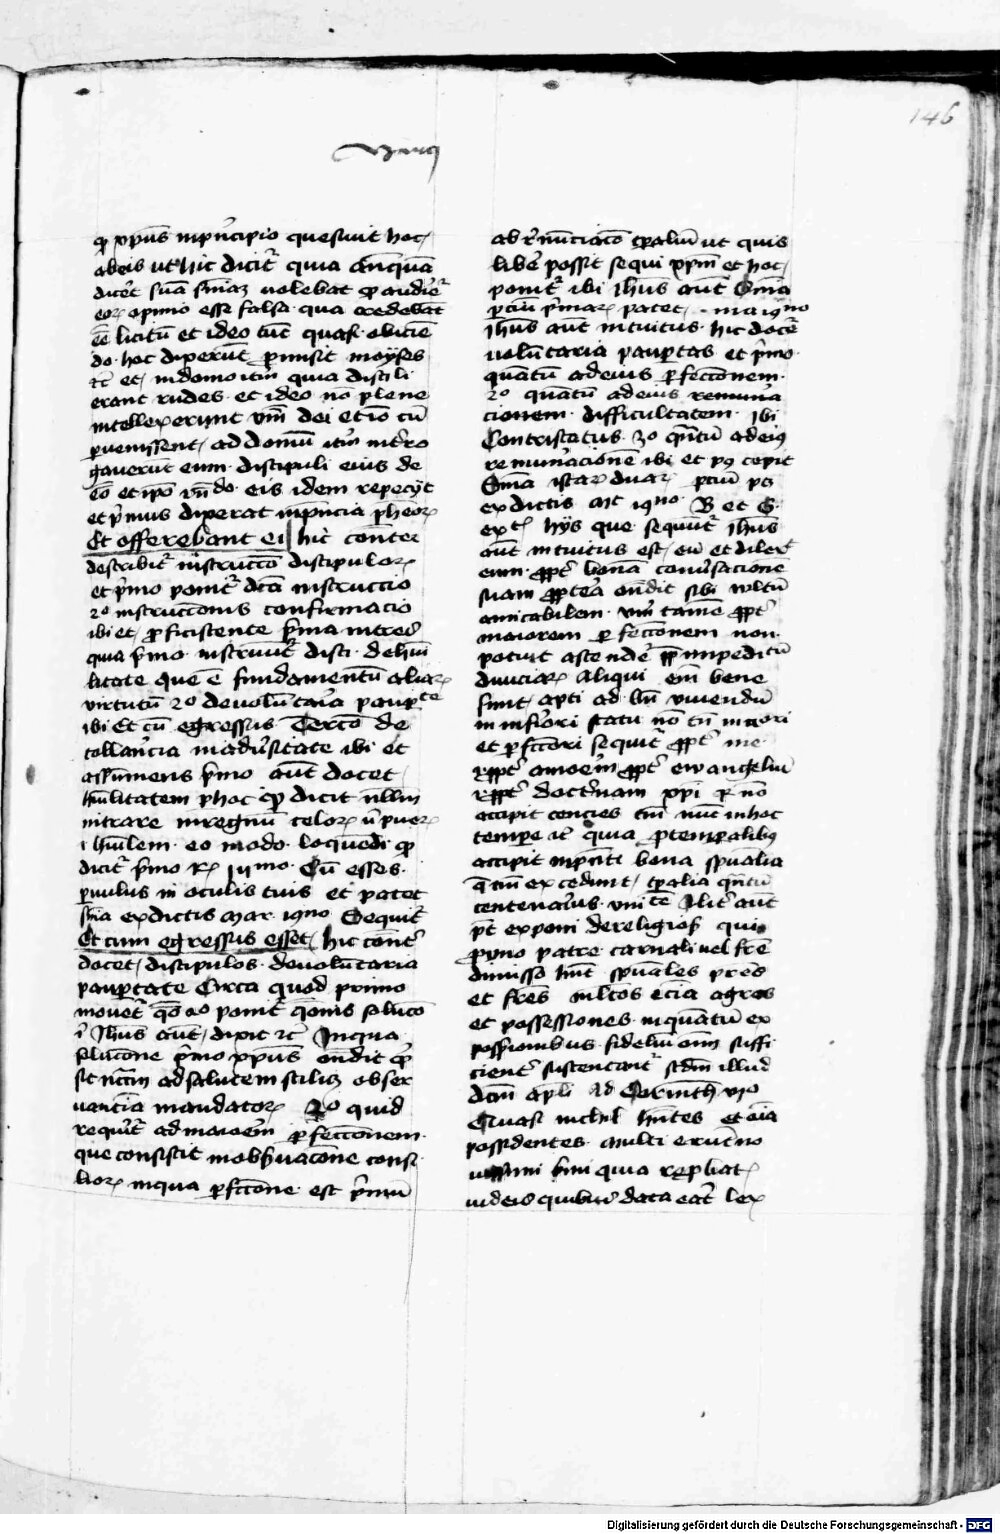 146
Marci
quod xpūs in pͥncipio quesiuit hoc
abeis ut hic dicitͬ quia antequā
dicēt suā sn̄iaꝫ uolebat ꝙ audiēt
eoꝝ opinio esse falsa qua credebāt
eē licitū et ideo tūc quasi obicien
do hoc dixerūt permisit moyses
⁊c̄ et in domo itm̄ quia discipuli
erant rudes et ideo nō plene
intellexerunt v̄m̄ dei et iō cū
puenissent ad domū itm̄ intero
gauerūt eum discipuli eius de
eō et ipō eis idem repecijt
et pͥmus dixerat in pn̄cia pheōꝝ
Et offerebant ei hic conter
describitͬ instruccō discipuloꝝ
et pͥmo ponitͬ dc̄a instruccio
2º instruccōnis confirmacio
ibi et proficistente pͥma in tres
quia pͥmo instruūtͬ disci de humi
litate que ē fundamentū aliaꝝ
virtutū 2º de volūtaria paupte
ibi Et cū egressus Tercō de
tollancia in adūsitate ibi et
assumens pͥmo aut̄ docet
hūilitatem p hoc ꝙ dicit nullum
intrare in regnū celoꝝ nͥ pueꝝ
ı hūilem eo modo loquēdi ꝙ
dicitͬ pͥmo Rꝫ Cū esses
pvulus in oculis tuis et patet
sn̄ia ex dictis mar 19no Sequitͬ
Et cum egressus esset hic con̄tͬ
docet discipulos de volūtaria
pauptate Circa quod primo
mouetͬ qō 2º ponitͬ qōnis solucō
ı̄ Jhūs aut̄ dixit ⁊c̄ In qua
solucōne pͥmo xpūs on̄dit ꝙ
sit nc̄m ad salutem scilicꝫ obser
uancia mandatoꝝ 2º quid
requirͬ ad maiorem pfeccōnem
que consistit in obẜuacōne consi
lioꝝ in qua pfcc̄one est pͥmū
ab renūciacō tpaliū ut quis
libe possit sequi xpm̄ et hoc
ponitͬ ibi ihūs aut̄ Sn̄ia
pciū pͥmaꝝ patet maͥ 19no
Jhūs aut̄ intuitus hic docet
uolūtaria pauptas et pͥmo
quātū ad eius pfeccōnem
2º quātū ad eius remuna
cionem difficultatem ibi
Contristatus 3º qn̄tū ad eiꝰ
remun̄acionē ibi et pꝰ cepit
Sn̄ia istaꝝ duaꝝ pciū pꝫ
ex dictis mt 19no B et G
ex hijs que sequūtͬ Jhūs
aut̄ intuitus est eū et dilexͭ
eum propter bonā conūsacionē
suam propterea ondit sibi wltū
amicabilem v̄m̄ tamē propter
maiorem pfeccōnem non
potuit ascendē pp̄ impeditū
diuiciaꝝ Aliqui em̄ bene
sunt apti ad bn̄ viuendū
in infiori statu nō tn̄ in maori
et pfcc̄ori sequitͬ propter me
propter amorem propter ewangeliū
propter doctͥnam xpi quam nō
accipit centies tm̄ nunc in hoc
tempe ⁊c̄ quia pro tempalibꝰ
accipit in pn̄ti bona spūalia
que tm̄ excedunt tpalia qn̄tū
centenariꝰ vnitate Alitͬ aut̄
pt̄ exponi de religiosꝭ qui
primo patre carnali uel frē
dimisso hnt̄ spūales pres
et frēs multos ec̄ia agros
et possessiones in quātū ex
possionibus fideliū om̄ suffi
cientͬ sustentantͬ scdm̄ illud
dc̄m apli Ad Corinth vjo
Quasi nichil hn̄tes et oīa
possidentes Multi erūt no
uissimi pͥmi quia repbati
iudeis quibus data erat lex
Digitalisierung gefördert durch die Deutsche Forschungsgemeinschaft - DFG